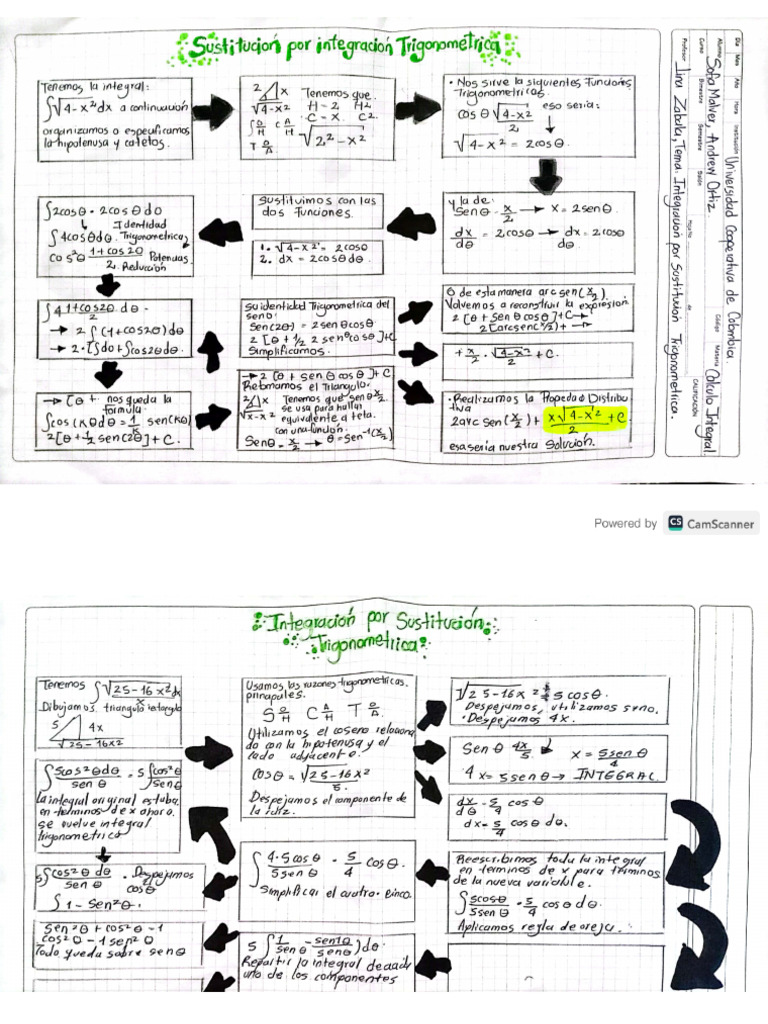 Sustitución por integración Trigonometrica
Tenemos la integral:
∫√4-x² dx a continuación
organizamos o especificamos
la hipotenusa y catetos.
2 x
√4-x²
Tenemos que.
H-2 H2
C-x. C2.
√2²-x²
∫ O/H C A/H
T O/A
· Nos sirve la siguientes Funciones
Trigonometricas.
eso seria:
cos θ √4-x²/2
√4-x² = 2cosθ
y la de:
Senθ · x/2 → x = 2senθ
dx/dθ = 2cosθ → dx = 2cosθ dθ
Sustituimos con las
dos Funciones.
1. √4-x² = 2cosθ
2. dx = 2cosθdθ.
∫2cosθ · 2cosθdθ
Identidad
∫4cosθdθ. Trigonometrica,
cos²θ 1+cos2θ/2. Potencias
Reducción
∫4 1+cos2θ/2 dθ-
→ 2∫(1+cos2θ)dθ
→ 2·[∫dθ+∫cos2θdθ.
→ [θ + nos queda la
formula.
∫cos(Kθ)dθ = 1/K sen(Kθ)
2[θ+1/2 sen(2θ)]+C.
Su identidad Trigonometrica del
seno:
Sen(2θ) = 2senθcosθ
2[θ+1/2 2senθcosθ]+C
Simplificamos.
→ 2[θ + senθ cosθ]+C
Retomamos el Triangulo.
2 x Tenemos que senθ x/2
se usa para hallar
equivalente a teta.
con una funcion.
Senθ = x/2 → θ = sen⁻¹(x/2)
O de esta manera arc sen(x/2)
Volvemos a reconstruir la expresión
2[θ+senθcosθ]+C→
2[arcsen(x/2)+ →
+x/2 · √4-x²/2 + C.
· Realizamos la Propedad Distribu
tiva
2arc sen(x/2)+ x√4-x²/2 + C
esa seria nuestra Solución.
Dia Mes Año Hora Institución Universidad Cooperativa de Colombia.
Alumno Sofia Malver, Andrew Ortiz Código Materia Calculo Integral.
Curso Bimestre Semestre Salón CALIFICACIÓN
Profesor Tema: Integración por Sustitución Trigonometrica.
Powered by CS CamScanner
Integración por Sustitución
Trigonometrica.
Tenemos ∫√25-16x² dx
Dibujamos triangulo rectangulo
5 4x
√25-16x²
Usamos las razones trigonometricas.
prinapules.
S O/H C A/H T O/A
Utilizamos el coseno relaciona
do con la hipotenusa y el
lado adjacente.
cosθ = √25-16x²/5.
Despejamos el componente de
la raiz.
√25-16x² = 5 cosθ.
Despejamos, utilizamos seno.
· Despejamos 4x.
Senθ 4x/5 x = 5senθ/4
4x = 5senθ → INTEGRAL
dx/dθ - 5/4 cosθ
dx = 5/4 cosθ dθ.
Reescribimos toda la integral
en terminos de x para terminos
de la nueva variable.
∫ 5cosθ/5senθ · 5/4 cosθ dθ.
Aplicamos regla de oreja.
∫ 4·5cosθ/5senθ - 5/4 cosθ.
Simplificar el cuatro - cinco.
∫ 5cos²θdθ/senθ = 5∫cos²θ/senθ
la integral original estaba
en terminos de x ahora.
se vuelve integral
trigonometrica
5∫ cos²θ dθ/senθ · Despejamos
cosθ
∫1-Sen²θ.
Sen²θ + cos²θ - 1
cos²θ - 1 sen²θ
Todo queda sobre senθ
5∫(1/senθ - sen²θ/senθ)dθ.
Repartir la integral de cada
uno de los componentes